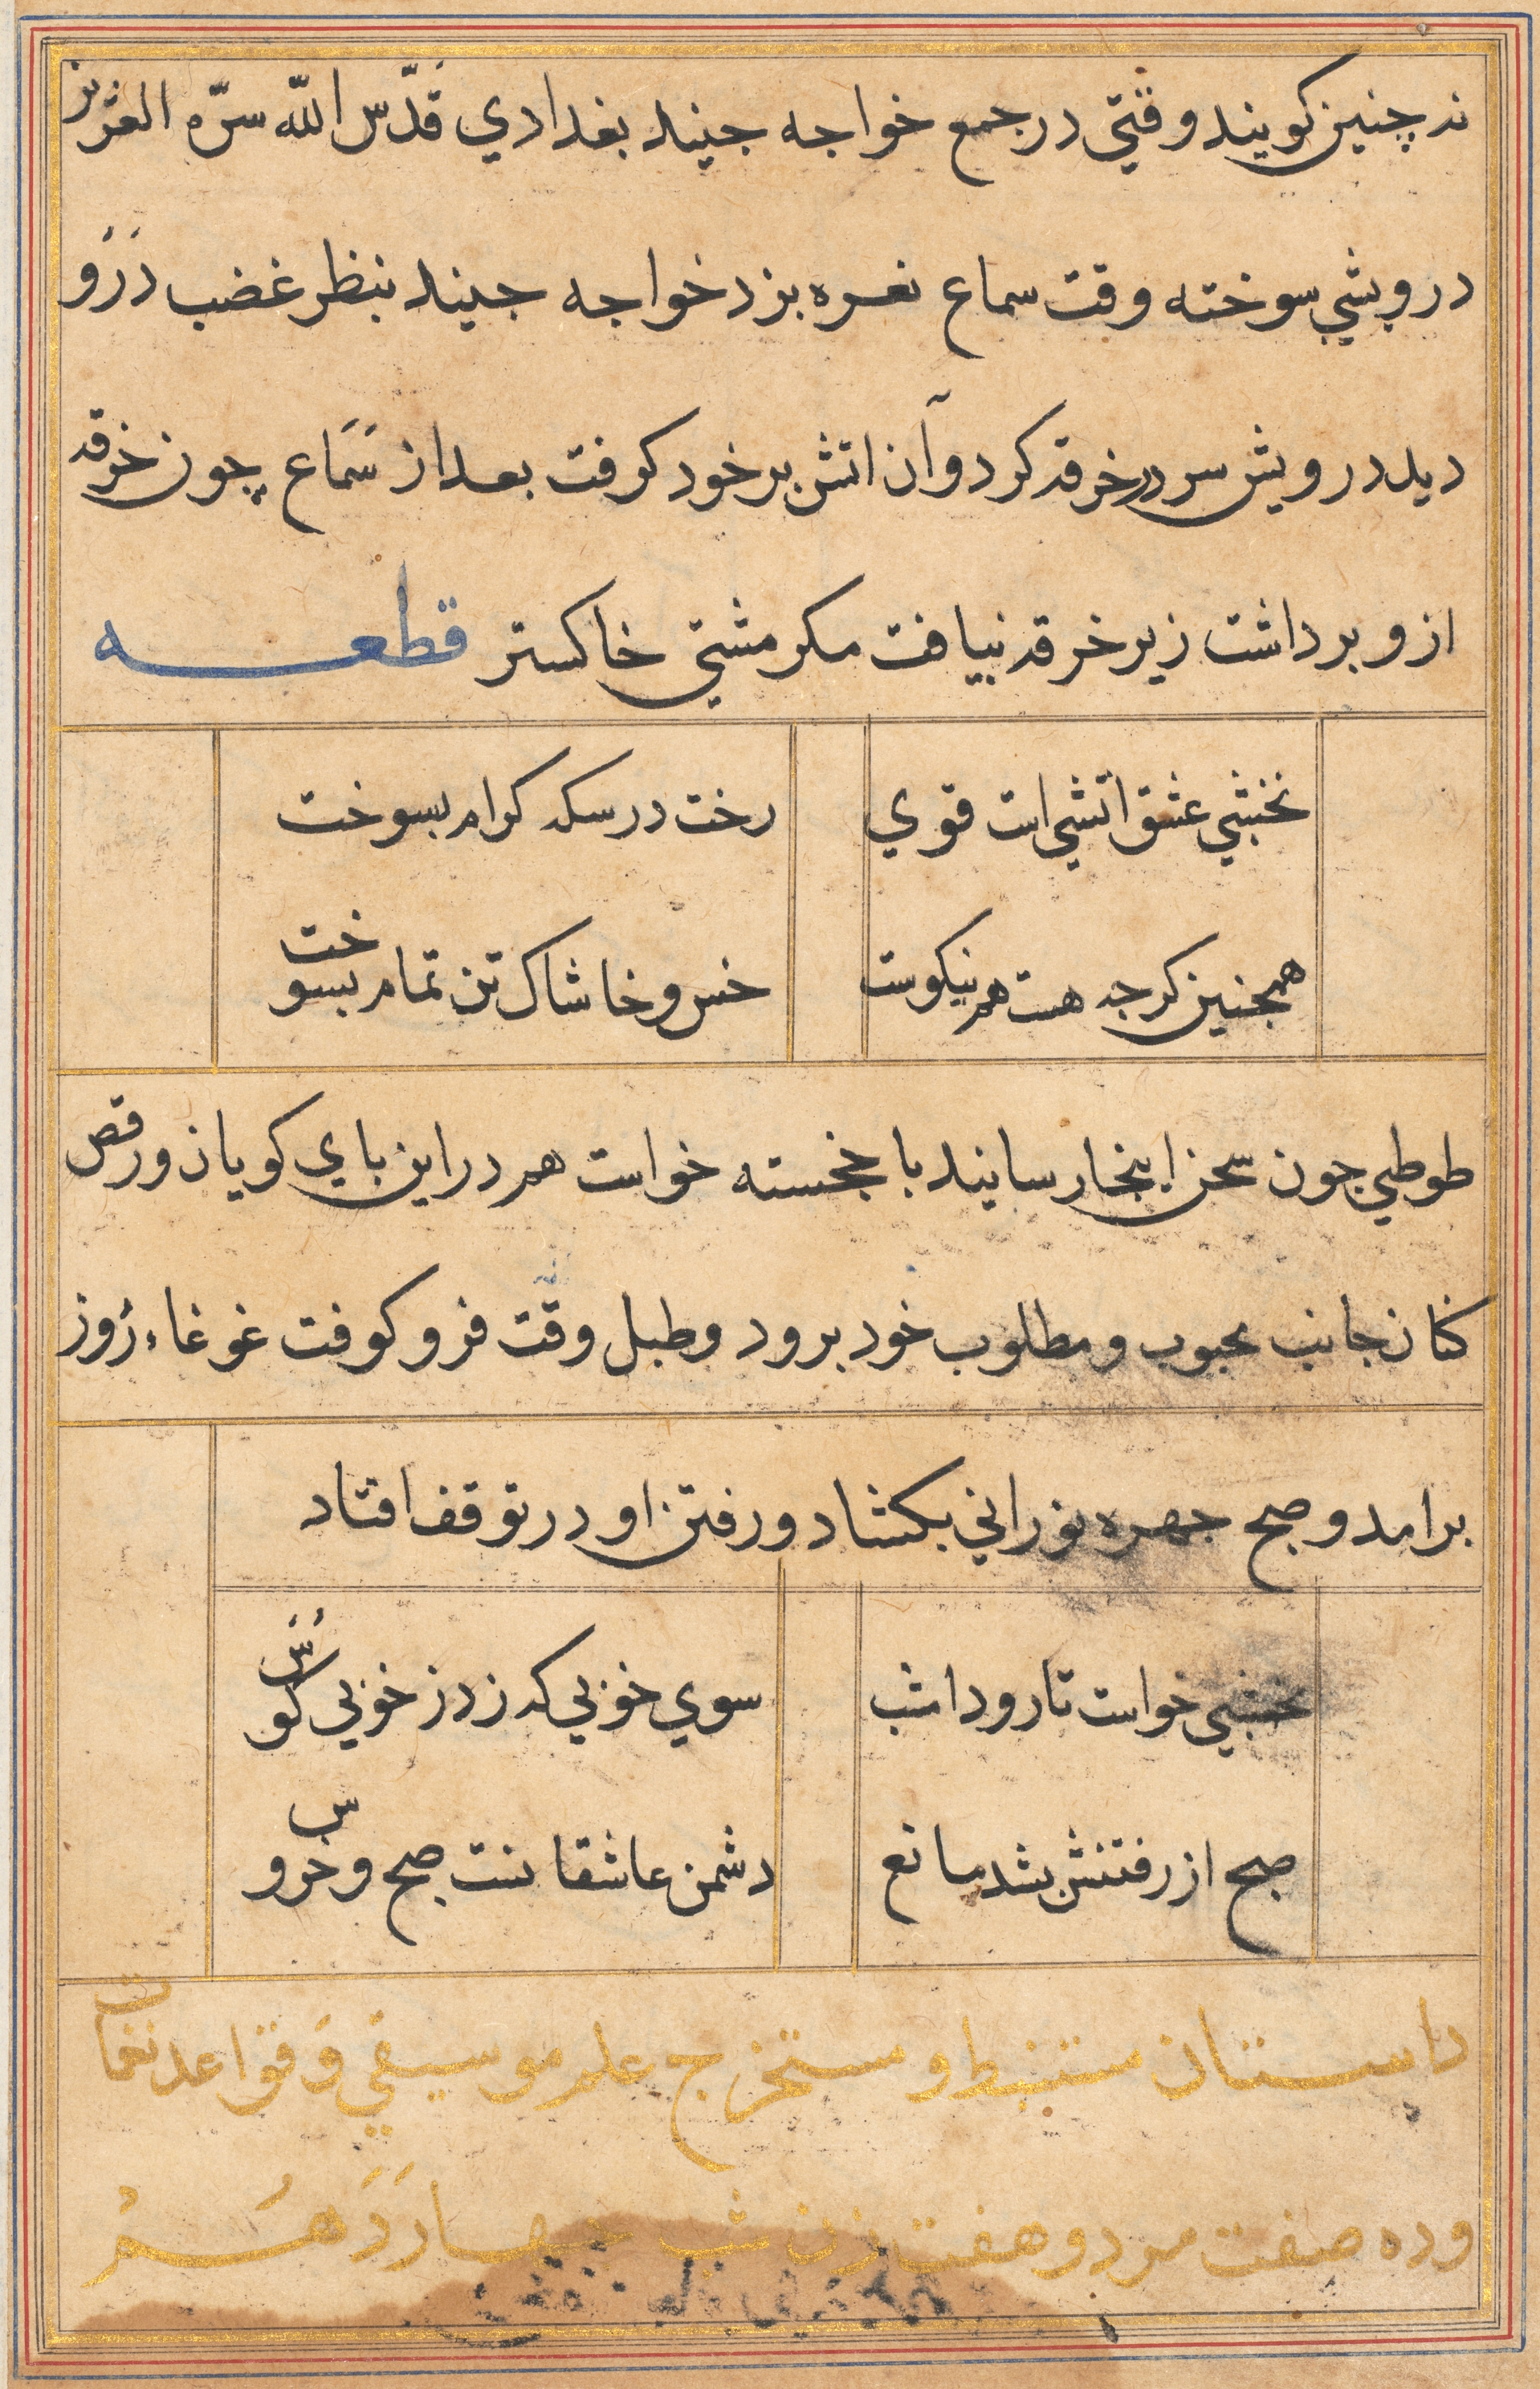 ند چنین کویند وقتی در جمع خواجه جنید بغدادي قدّس اللّه سرّه العزیز
درویشي سوخته وقت سماع نعره بزد خواجه جنید بنظر غضب دَرَو
دید درویش سر در خرقه کرد و آن اتش بر خود کرفت بعد از سَمَاع چون خرقه
ازو برداشت زیر خرقه نیافت مکر مشتی خاکستر قطعه
نخشبي عشق اتشي است قوي
رخت در سکه کرام بسوخت
همچنین کرجه هست هم نیکوست
خس و خاشاک تن تمام بسوخت
طوطي جون سخن اینجا رسانید با خجسته خواست هم در این باي کویان و رقص
کنان جانب محبوب و مطلوب خود برود و طبل وقت فرو کوفت غوغاء روز
برامد و صبح جهره نوراني بکشاد و رفتن او در توقف افتاد
نخشبي خواست تا رود امشب
سوي خوبي که زد ز خوبي کوُسْ
صبح از رفتنش بشد مانع
دشمن عاشقانست صبح و خروس
داستان مستنبط و مستخرج علم موسیقي وَ قواعد نغمات
و ده صفت مرد و هفت زن شب جهارَدَهُمْ